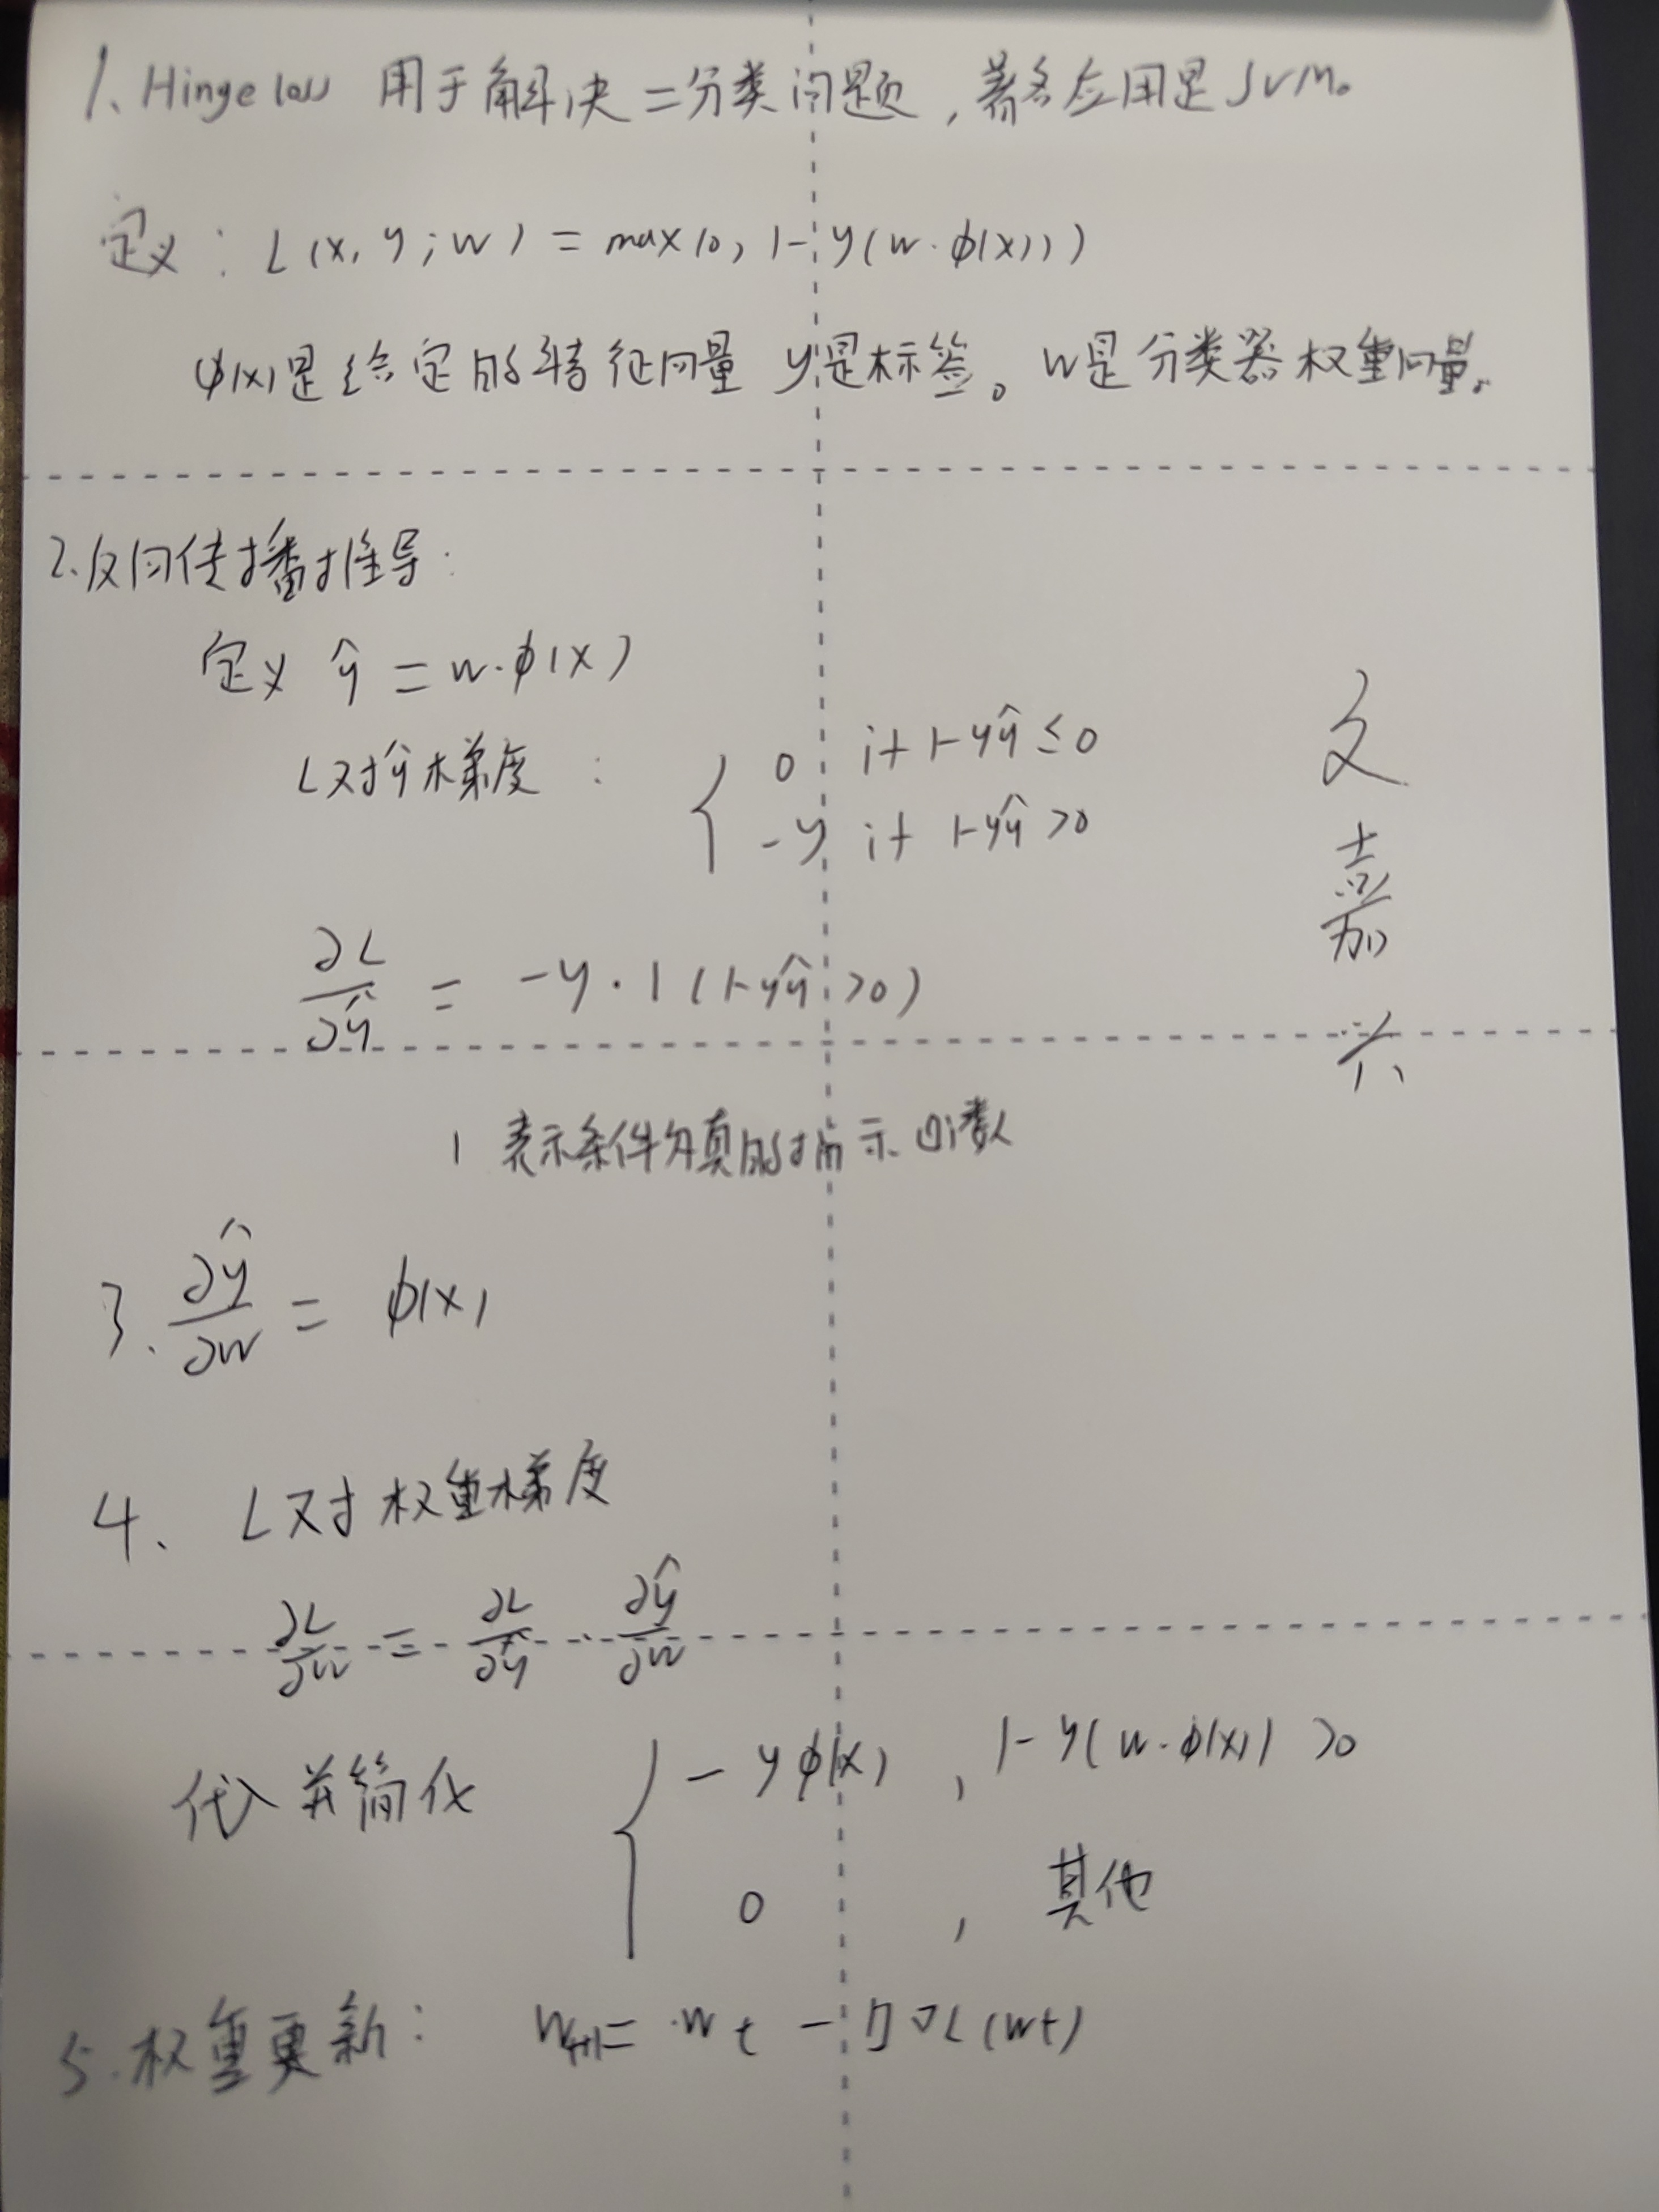 1、Hinge loss 用于解决二分类问题，著名应用是SVM。
定义：L(x, y; w) = max(0, 1-y(w·ϕ(x)))
ϕ(x)是给定的特征向量 y是标签。w是分类器权重向量。
2.反向传播推导：
定义 ŷ = w·ϕ(x)
L对ŷ梯度：{ 0 if 1-yŷ ≤ 0
-y if 1-yŷ > 0
∂L/∂ŷ = -y·1(1-yŷ > 0)
1 表示条件为真的指示函数
3. ∂ŷ/∂w = ϕ(x)
4、L对权重梯度
∂L/∂w = ∂L/∂ŷ · ∂ŷ/∂w
代入并简化 { -yϕ(x) , 1-y(w·ϕ(x)) > 0
0 , 其他
5.权重更新： w_{t+1} = w_t - η∇L(w_t)
文嘉兴